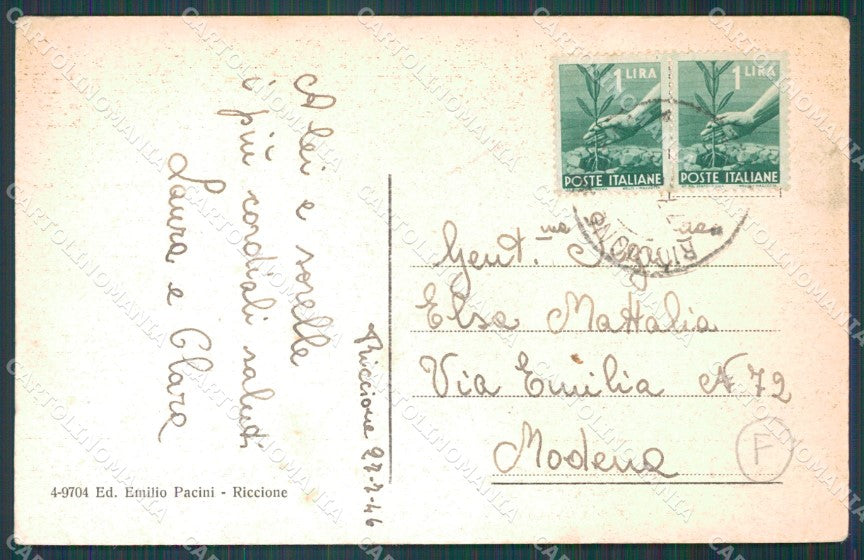 A lei e sorelle
i più cordiali saluti
Laura e Clara
Riccione 27-7-46
4-9704 Ed. Emilio Pacini - Riccione
1 LIRA
POSTE ITALIANE
1 LIRA
POSTE ITALIANE
Gent.ma
Elsa Mattalia
Via Emilia N 72
Modena
F
CARTOLINOMANIA